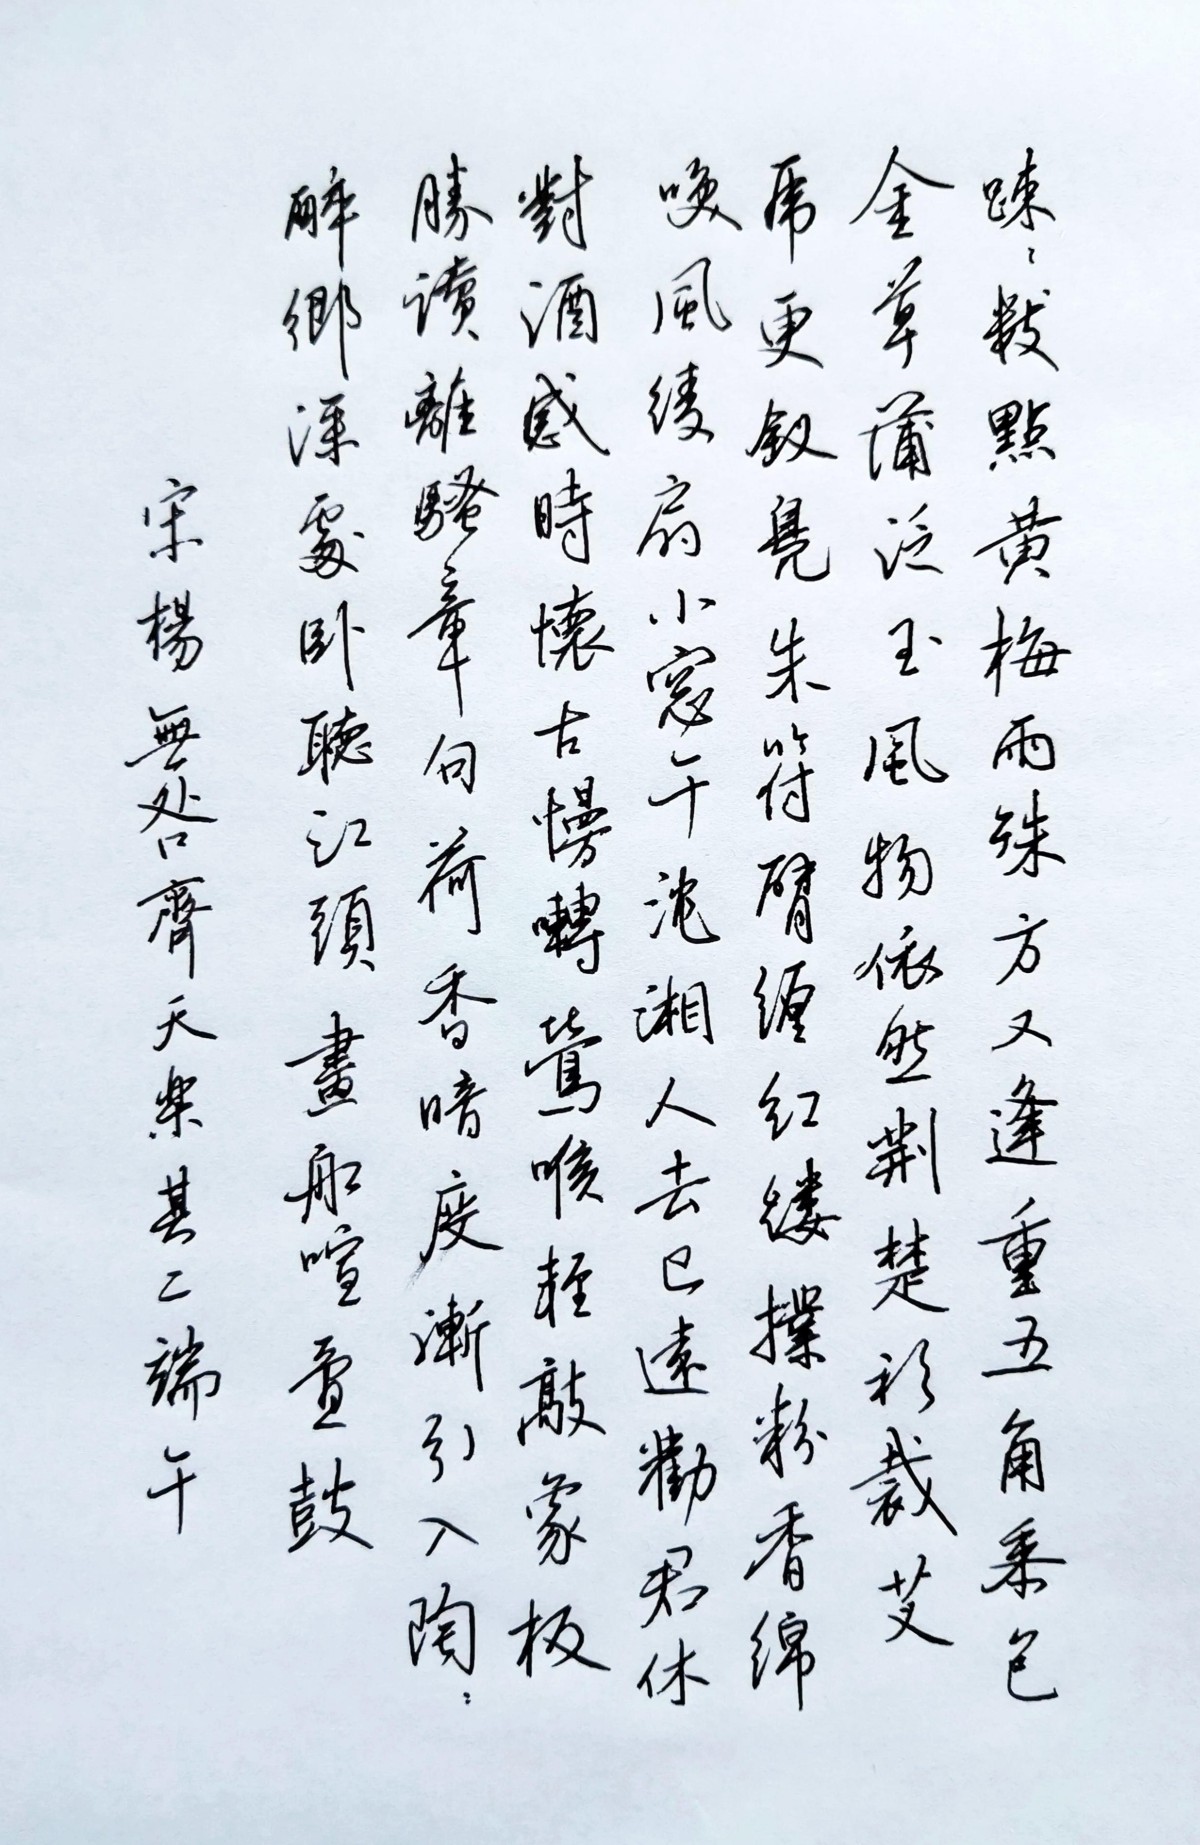 疎〻數點黃梅雨殊方又逢重五角黍包
金草蒲泛玉風物依然荆楚衫裁艾
虎更釵鳧朱符臂纏紅縷撲粉香綿
喚風綾扇小窓午沈湘人去已遠勸君休
對酒感時懷古慢囀鶯喉輕敲象板
勝讀離騷章句荷香暗度漸引入陶〻
醉鄉深處卧聽江頭畫船喧疊鼓
宋楊無咎齊天樂其二端午